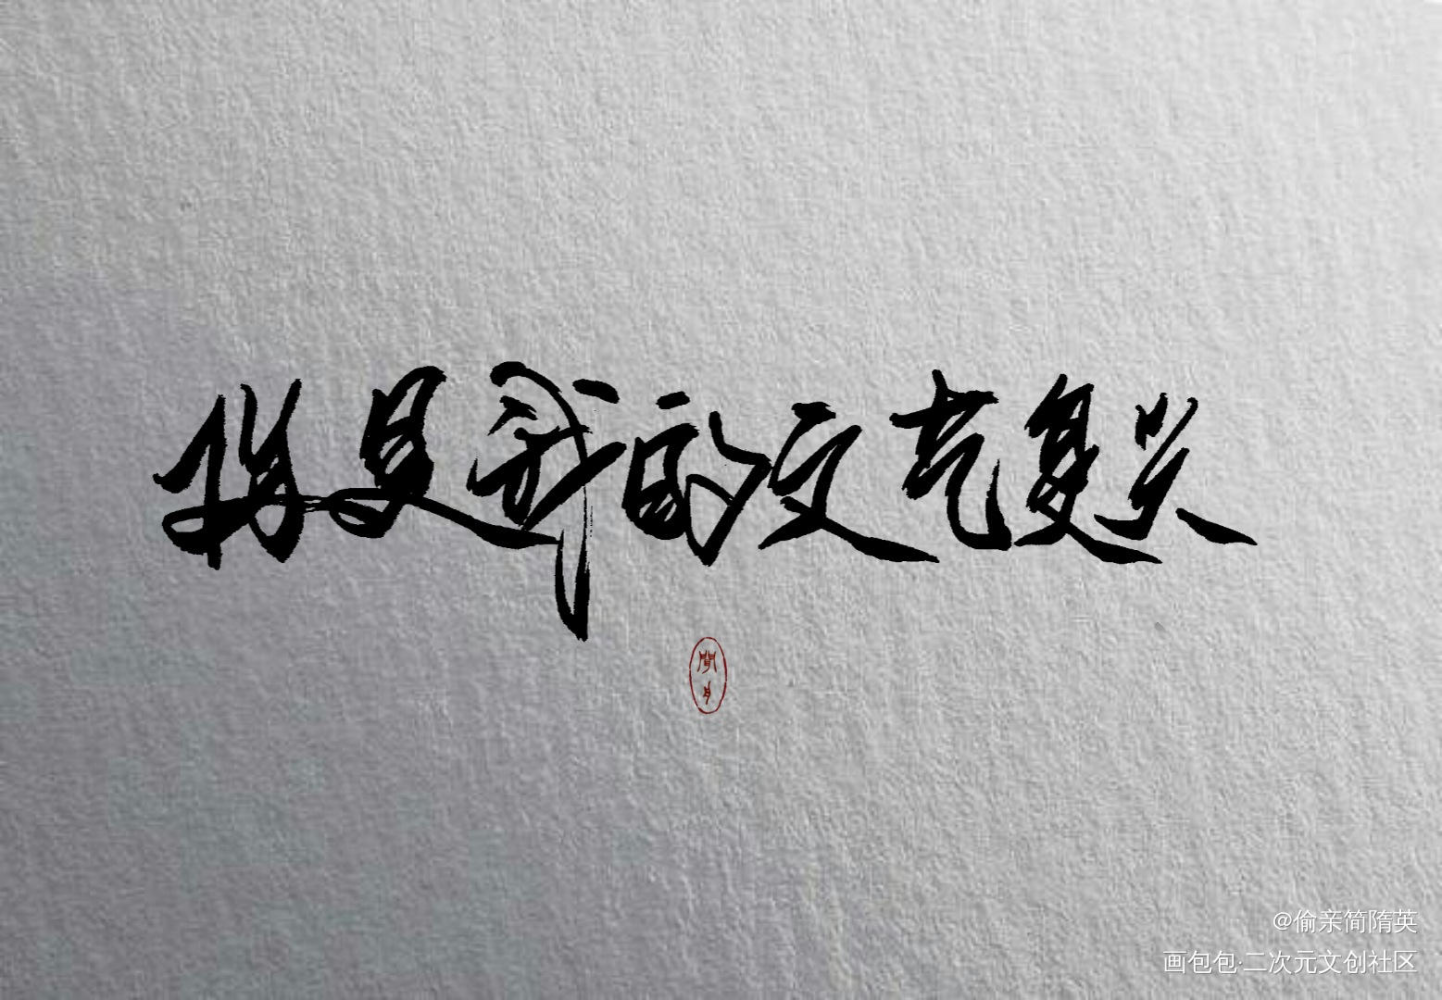 你是我的文艺复兴
@偷亲简隋英
画包包·二次元文创社区